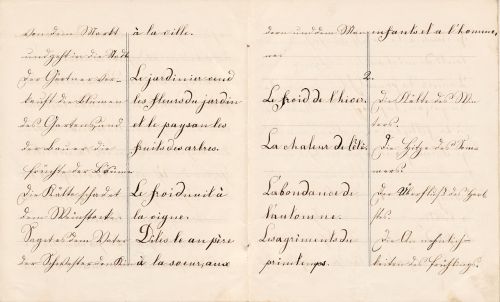 von dem Markt
und geht in die Stadt
der Gärtner ver-
kauft die Blumen
des Gartens, und
der Bauer die
Früchte der Bäume
Die Kälte schadet
dem Weinstocke.
Saget es dem Vater
der Schwester den Kin
à la ville.
Le jardinier vend
les fleurs du jardin
et le paysan les
fruits des arbres.
Le froid nuit à
la vigne.
Dites le au père
à la soeur, aux
dern und dem Man
ner
enfants et à l'homme.
2.
Le froid de l'hiver.
La chaleur de l'été.
L'abondance de
l'automne.
Les agréments du
printemps.
die Kälte des Win
ters.
die Hitze des Som
mers.
der Überfluß des Herb
stes.
die Annehmlich-
keiten des Frühlings.